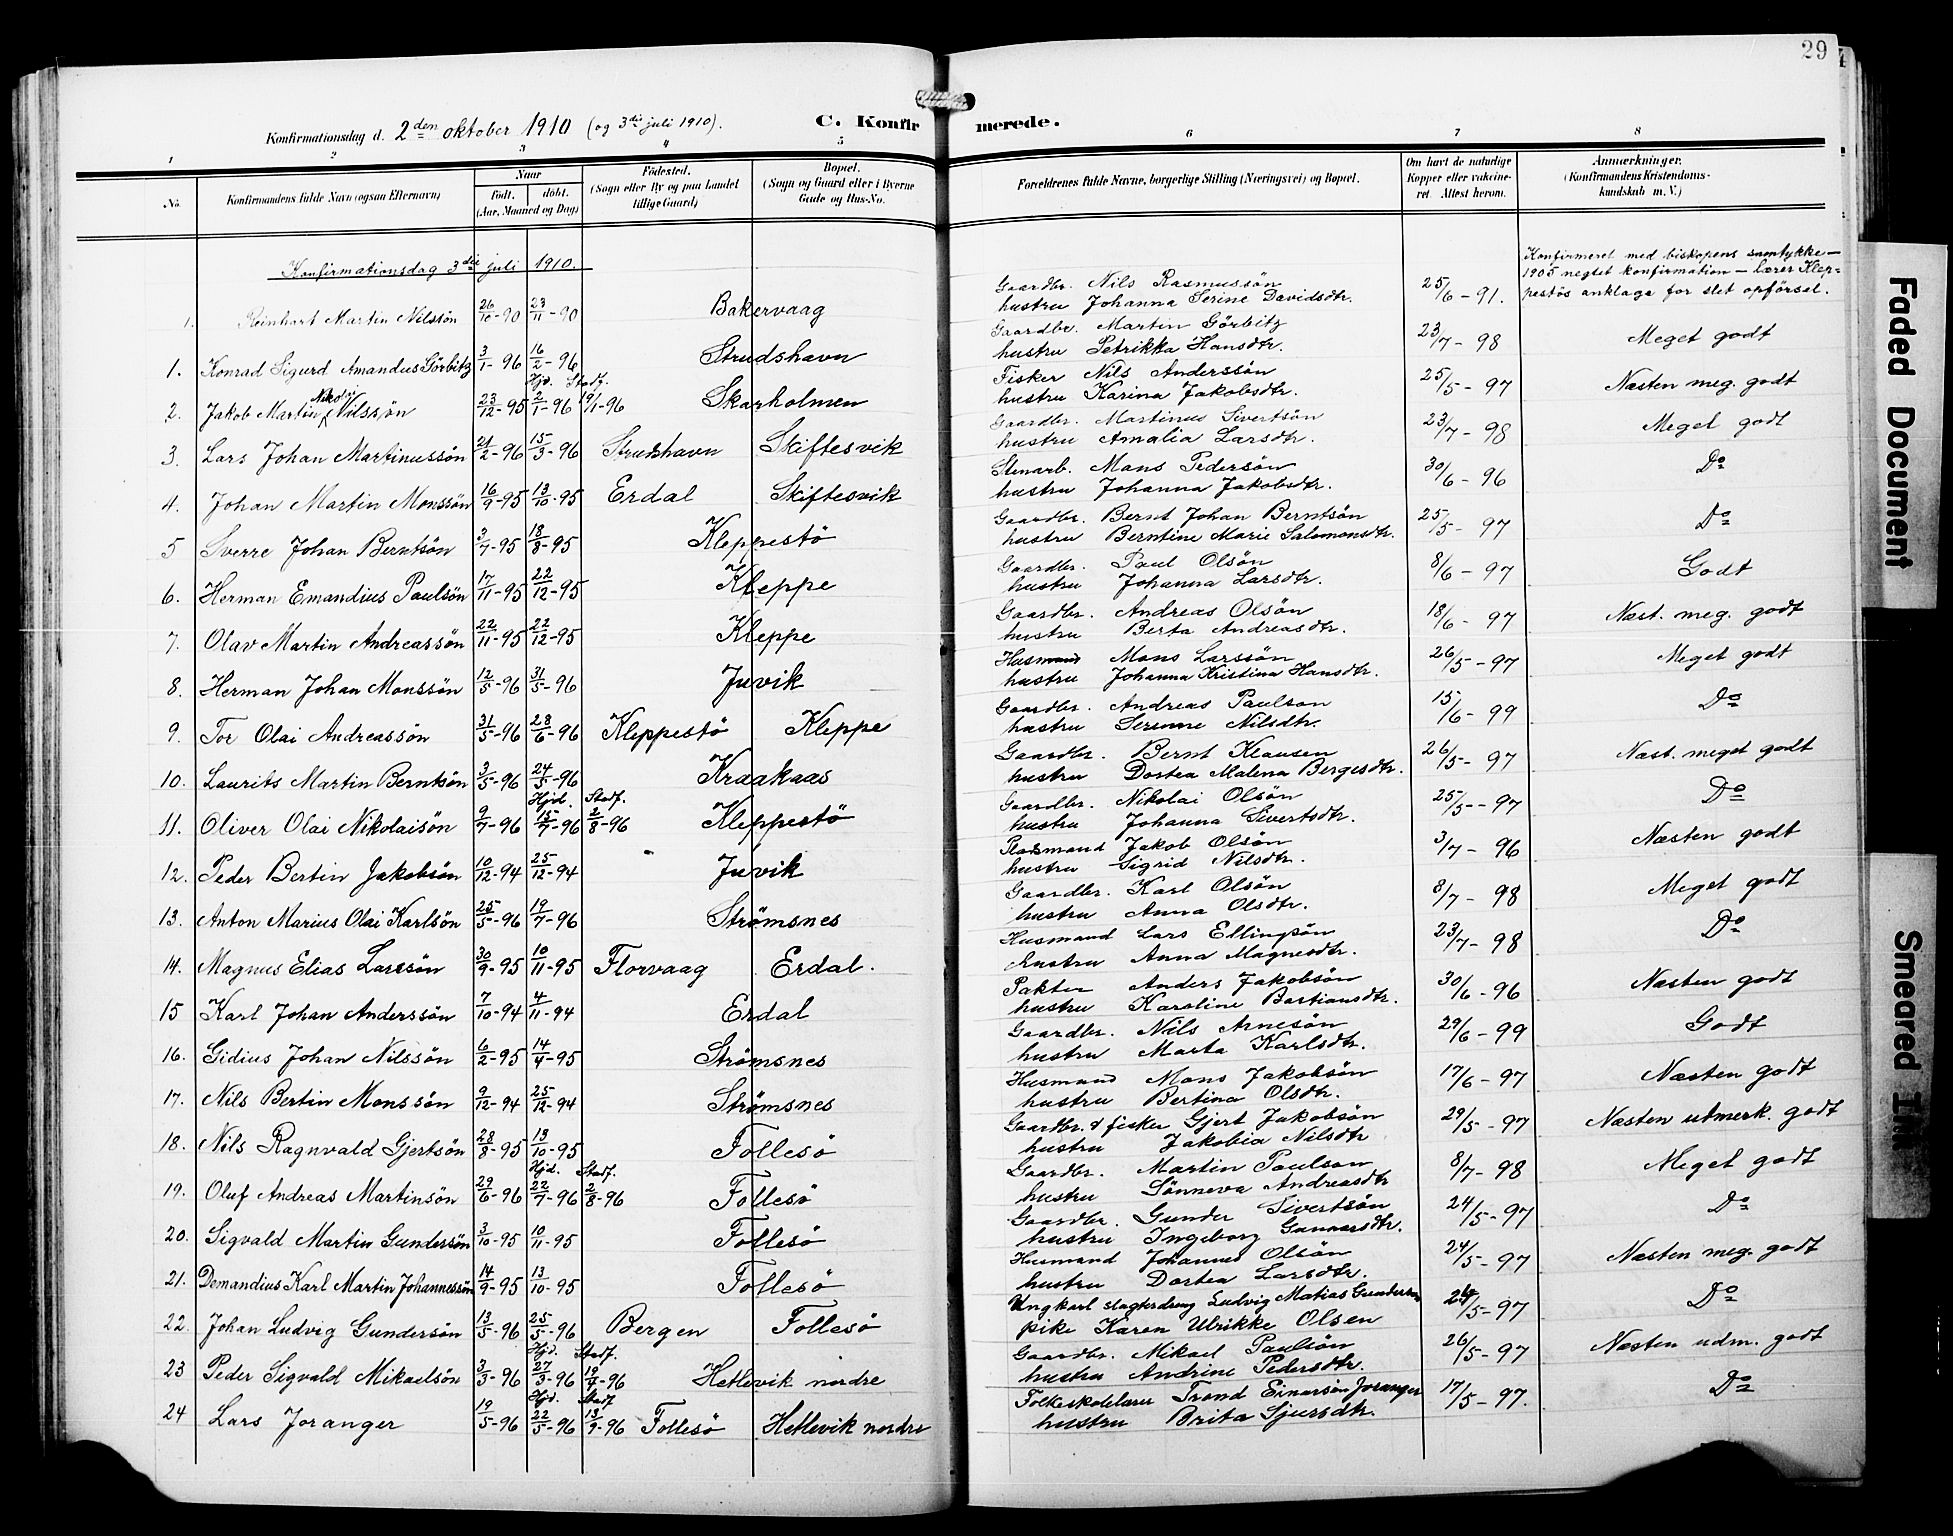 29
Konfirmationsdag d. 2den oktober 1910 (og 3die juli 1910).
C. Konfirmerede.
1 2 3 4 5 6 7 8
No.
Konfirmandens fulde Navn (ogsaa Efternavn)
Naar
født. døbt.
(Aar, Maaned og Dag)
Fødested.
(Sogn eller By og paa Landet
tillige Gaard)
Bopæl.
(Sogn og Gaard eller i Byerne
Gade og Hus-No.
Forældrenes fulde Navne, borgerlige Stilling (Næringsvei) og Bopæl.
Om havt de naturlige
Kopper eller vakcine-
ret. Attest herom.
Anmærkninger.
(Konfirmandens Kristendoms-
kundskab m. V.)
Konfirmationsdag 3die juli 1910.
Konfirmeret med biskopens samtykke –
1905 negtet konfirmation – lærer Klep-
pestøs anklage for slet opførsel.
1. Reinhart Martin Nilssön 26/10-90 23/11-90 Bakervaag
Gaardbr. Nils Rasmussön
hustru Johanna Serine Davidsdtr. 25/6-91.
1. Konrad Sigurd Amandus Görbitz 3/1-96 16/2-96 Strudshavn
Gaardbr. Martin Görbitz
hustru Petrikka Hansdtr. 23/7-98 Meget godt
Hjd. Stadf.
2. Jakob Martin Nikolai Nilssön 23/12-95 2/1-96 19/1-96 Skarholmen
Fisker Nils Anderssön
hustru Karina Jakobsdtr. 25/5-97 Næsten meg. godt
3. Lars Johan Martinussön 21/2-96 15/3-96 Strudshavn Skiftesvik
Gaardbr. Martinus Sivertsön
hustru Amalia Larsdtr. 23/7-98 Meget godt
4. Johan Martin Monssön 16/9-95 13/10-95 Erdal Skiftesvik
Stenarb. Mons Pedersön
hustru Johanna Jakobsdtr. 30/6-96 Do
5 Sverre Johan Berntsön 3/7-95 18/8-95 Kleppestö
Gaardbr. Bernt Johan Berntsön
hustru Berntine Marie Salomonsdtr. 25/5-97 Do
6. Herman Emandius Paulsön 17/11-95 22/12-95 Kleppe
Gaardbr. Paul Olsön
hustru Johanna Larsdtr. 8/6-97 Godt
7. Olav Martin Andreassön 22/11-95 22/12-95 Kleppe
Gaardbr. Andreas Olsön
hustru Berta Andreasdtr. 18/6-97 Næst. meg. godt
8. Herman Johan Monssön 12/5-96 31/5-96 Juvik
Husmand Mons Larssön
hustru Johanna Kristina Hansdtr. 26/5-97 Meget godt
9. Tor Olai Andreassön 31/5-96 28/6-96 Kleppestö Kleppe
Gaardbr. Andreas Paulson
hustru Serenne Nilsdtr. 15/6-99 Do
10. Laurits Martin Berntsön 3/5-96 24/5-96 Kraakaas
Gaardbr. Bernt Klausen
hustru Dortea Malena Bergesdtr. 26/5-97 Næst. meget godt
Hjd. Stadf.
11. Oliver Olai Nikolaisön 9/7-96 15/7-96 2/8-96 Kleppestö
Gaardbr. Nikolai Olsön
hustru Johanna Sivertsdtr. 25/5-97 Do
12. Peder Bertin Jakobsön 10/12-94 25/12-94 Juvik
Pladsmand Jakob Olsön
hustru Sigrid Nilsdtr. 3/7-96 Næsten godt
13. Anton Marius Olai Karlsön 25/5-96 19/7-96 Strømsnes
Gaardbr. Karl Olsön
hustru Anna Olsdtr. 8/7-98 Meget godt
14. Magnus Elias Larssön 30/9-95 10/11-95 Florvaag Erdal.
Husmand Lars Ellingsön
hustru Anna Magnesdtr. 23/7-98 Do
15 Karl Johan Anderssön 7/10-94 4/11-94 Erdal
Pakter Anders Jakobsön
hustru Karoline Bastiansdtr. 30/6-96 Næsten godt
16. Gidius Johan Nilssön 6/2-95 14/4-95 Strømsnes
Gaardbr. Nils Arnesön
hustru Marta Karlsdtr. 29/6-99 Godt
17. Nils Bertin Monssön 9/12-94 25/12-94 Strømsnes
Husmand Mons Jakobsön
hustru Bertina Olsdtr. 17/6-97 Næsten godt
18. Nils Ragnvald Gjertsön 28/8-95 13/10-95 Follesö
Gaardbr. & fisker Gjert Jakobsön
hustru Jakobia Nilsdtr 29/5-97 Næsten utmerk. godt
Hjd. Stadf.
19. Oluf Andreas Martinsön 29/6-96 22/7-96 2/8-96 Follesö
Gaardbr. Martin Paulson
hustru Sönneva Andreasdtr 8/7-98 Meget godt
20. Sigvald Martin Gundersön 3/10-95 10/11-95 Follesö
Gaardbr. Gunder Sivertsön
hustru Ingeborg Gunnarsdtr. 24/5-97 Do
21. Demandius Karl Martin Johannessön 14/9-95 13/10-95 Follesö
Husmand Johannes Olsön
hustru Dortea Larsdtr. 24/5-97 Næsten meg. godt
22. Johan Ludvig Gundersön 13/5-96 25/5-96 Bergen Follesö
Ungkarl slagterdreng Ludvig Matias Gundersen
pike Karen Ulrikke Olsen 24/5-97 Do
Hjd. Stadf.
23 Peder Sigvald Mikaelsön 3/3-96 27/3-96 19/4-96 Hetlevik nordre
Gaardbr. Mikael Paulsön
hustru Andrine Pedersdtr. 26/5-97 Næsten udm. godt
Hjd. Stadf
24 Lars Joranger 19/5-96 22/5-96 13/9-96 Follesö Hetlevik nordre
Folkeskolelærer Trond Einarsön Joranger
hustru Brita Sjursdtr. 17/5-97. Do
Faded Document
Smeared Ink